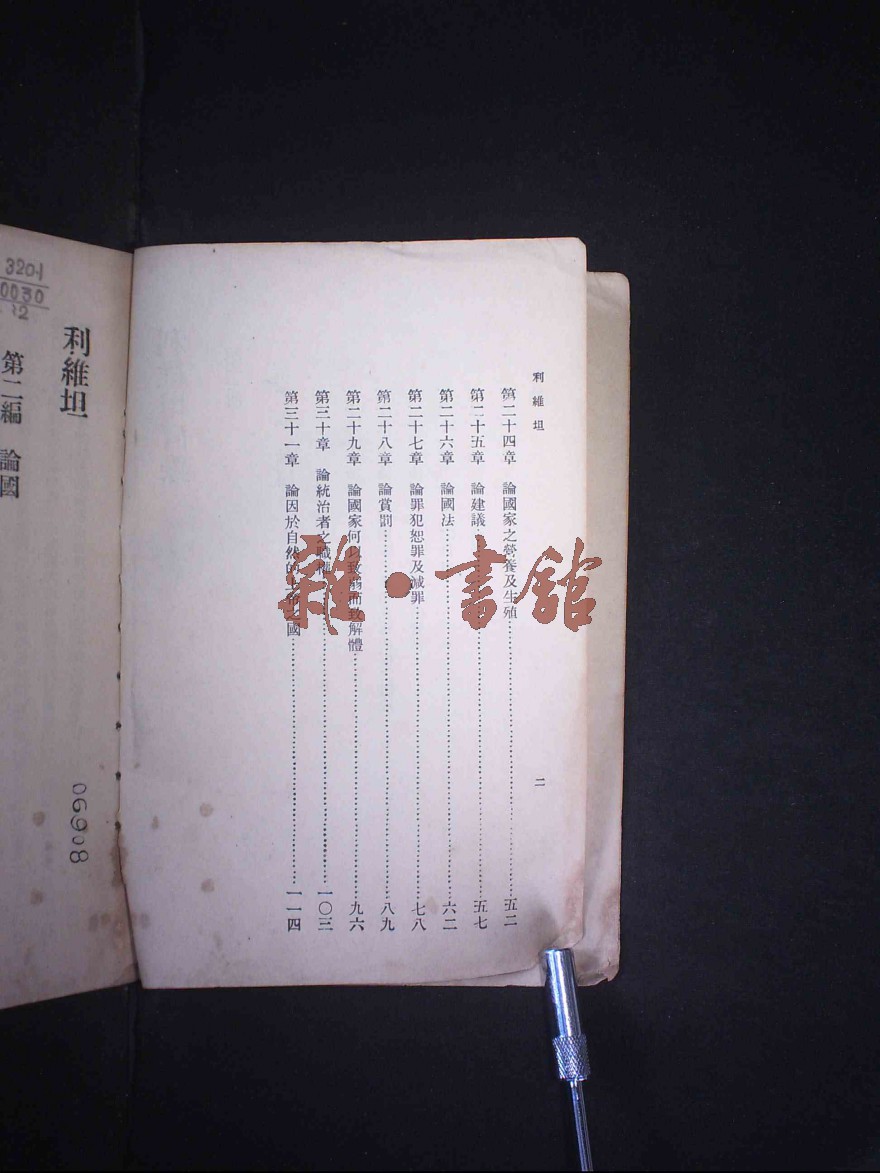 利維坦
二
第二十四章 論國家之營養及生殖……五二
第二十五章 論建議……五七
第二十六章 論國法……六二
第二十七章 論罪犯恕罪及減罪……七八
第二十八章 論賞罰……八九
第二十九章 論國家何以致弱而致解體……九六
第三十章 論統治者之職權……一〇三
第三十一章 論因於自然的上帝之國……一一四
雜·書館
利維坦
06908
第二編 論國
3201
0030
:2